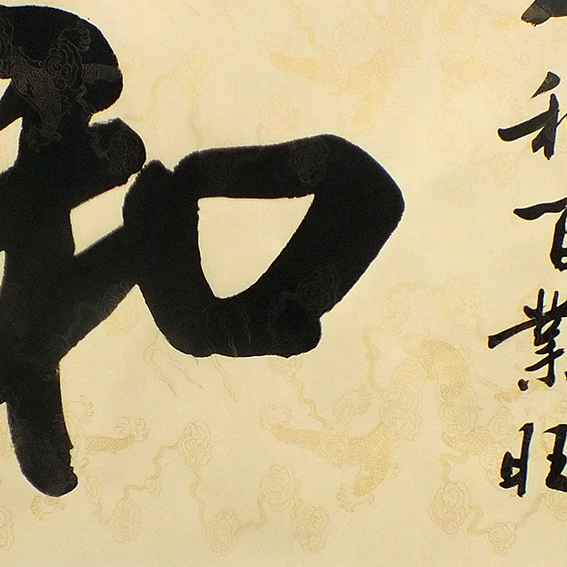 和百業旺
和